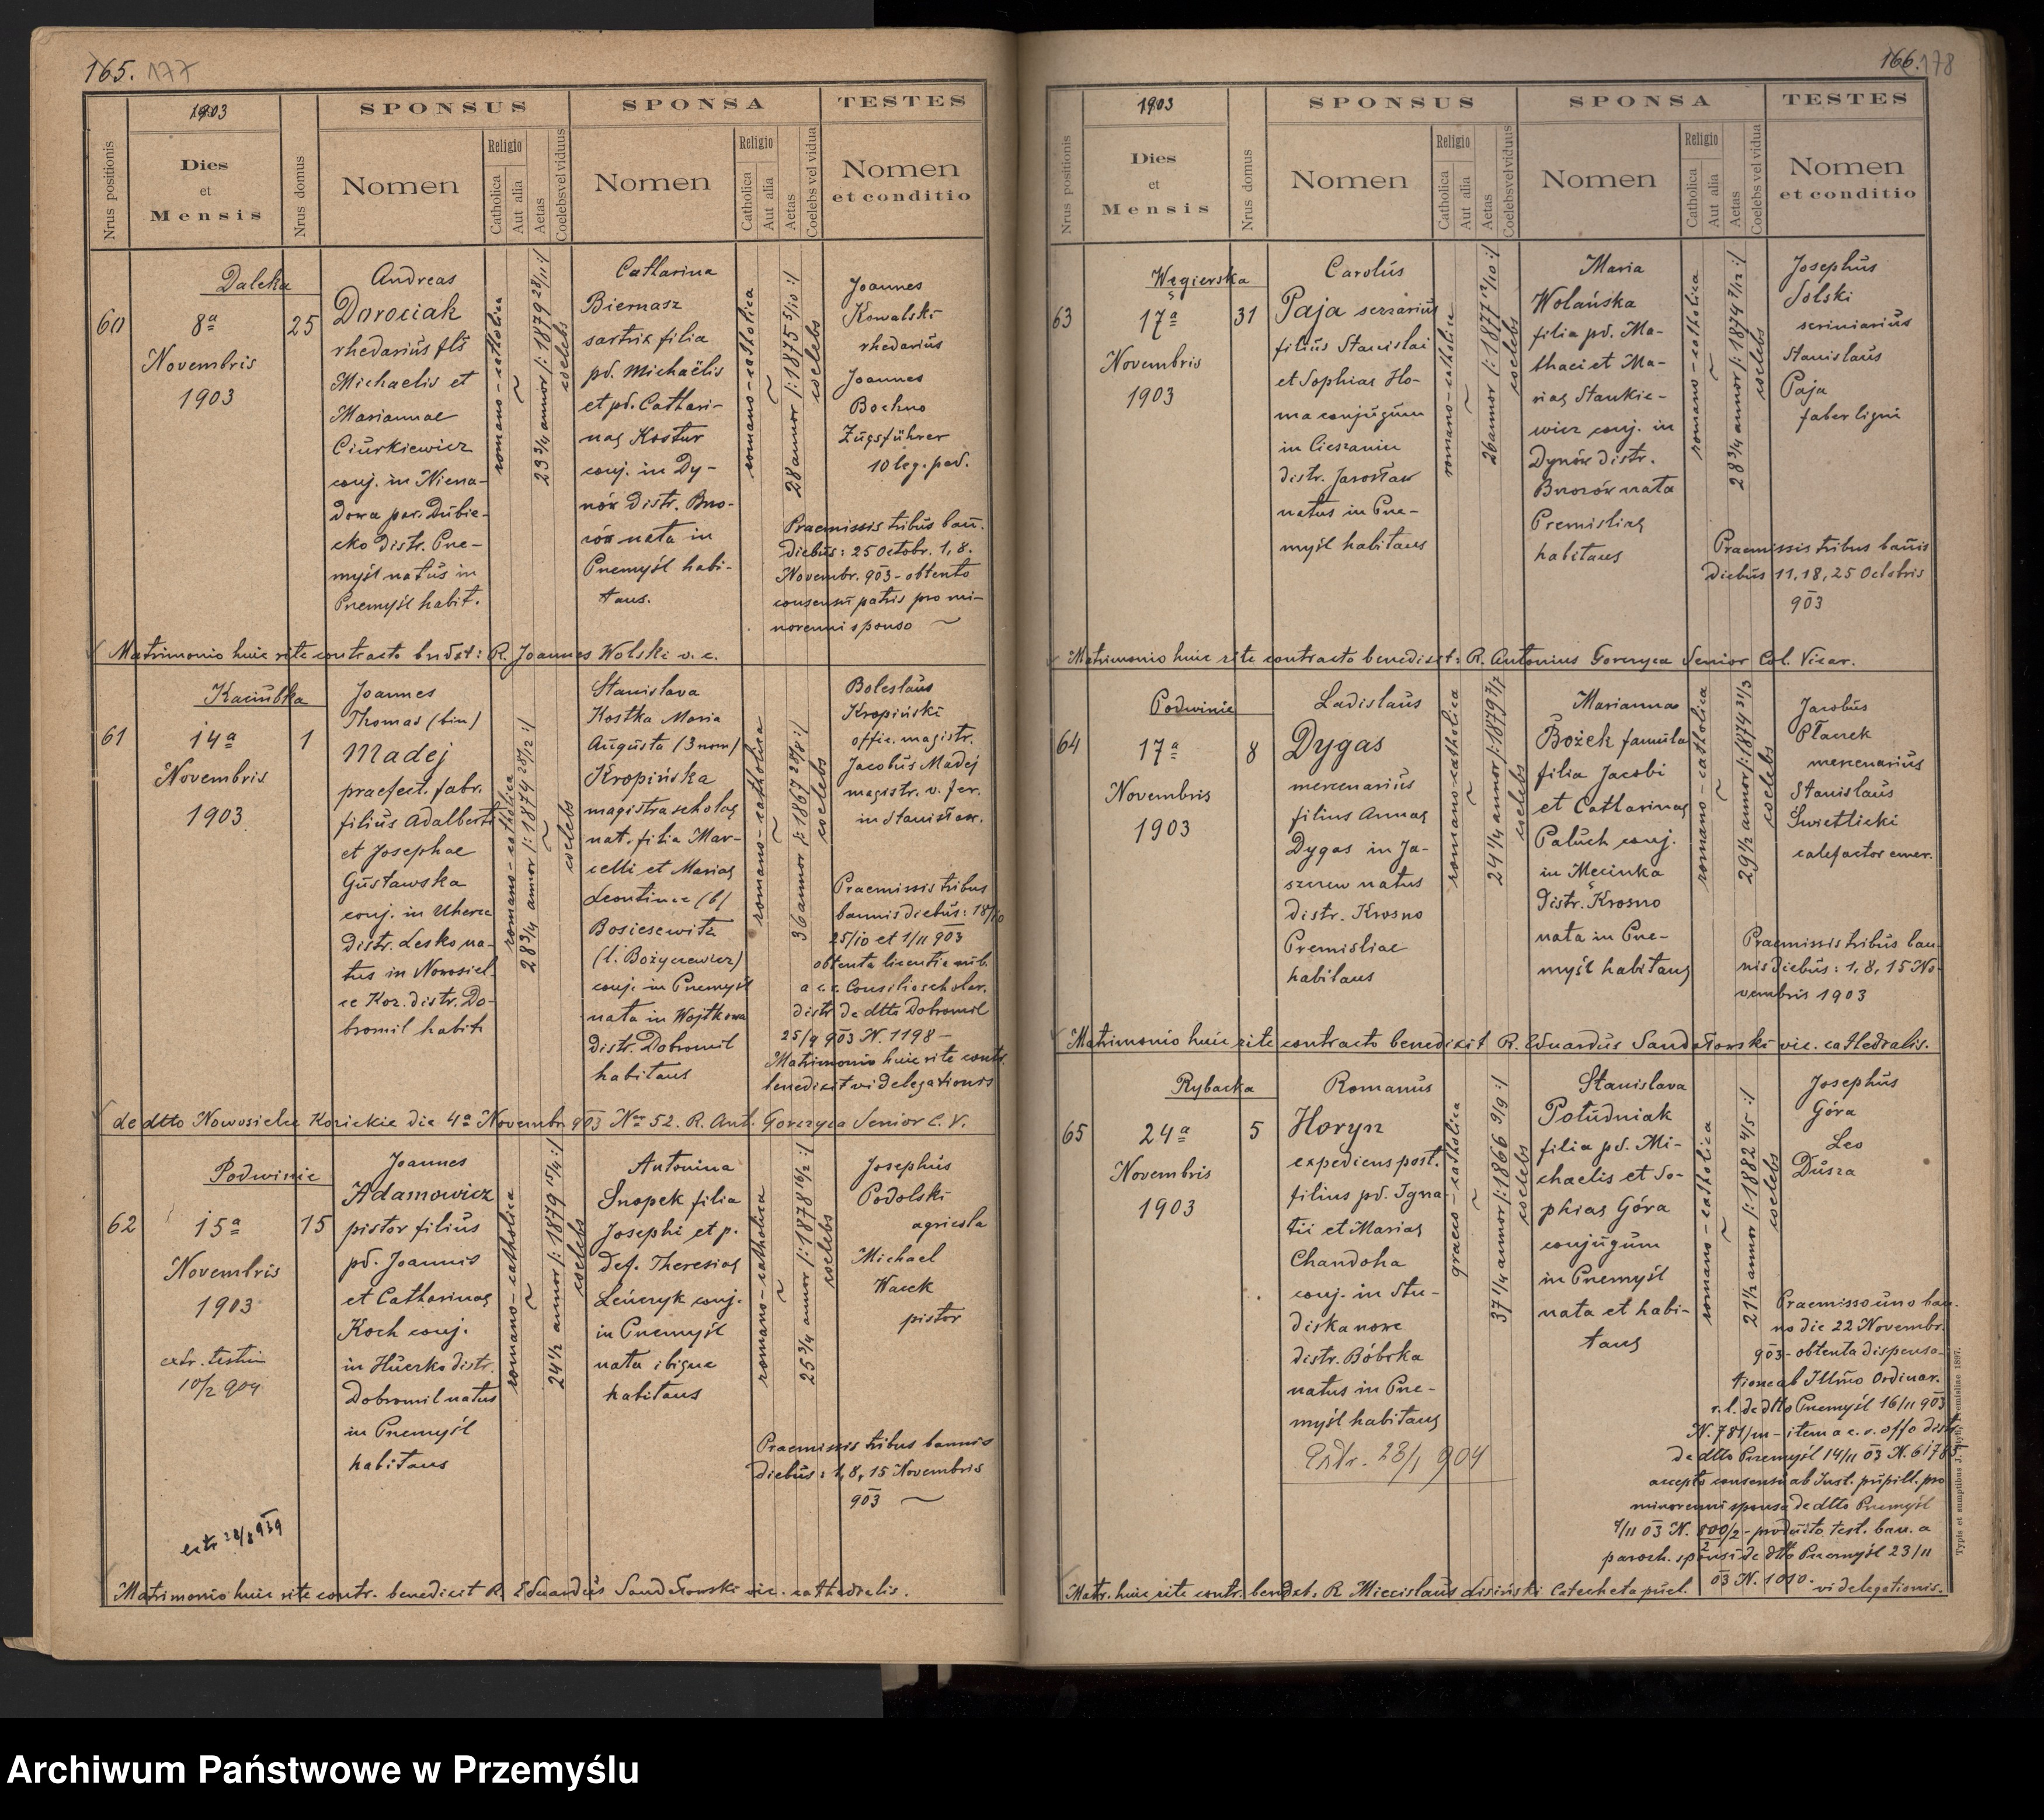 165. 177
1903
SPONSUS
SPONSA
TESTES
Nrus positionis
Dies
et
Mensis
Nrus domus
Nomen
Religio
Catholica
Aut alia
Aetas
Coelebs vel viduus
Nomen
Religio
Catholica
Aut alia
Aetas
Coelebs vel vidua
Nomen
et conditio
Daleka
60
8a
Novembris
1903
25
Andreas
Dorociak
rhedariüs fls
Michaelis et
Mariannae
Ciürkiewicz
conj. in Niena-
dowa par. Dübie-
cko distr. Prze-
myśl natüs in
Przemyśl habit.
romano-catholica
23 3/4 annor /: 1879 28/11 :/
coelebs
Catharina
Biernasz
sartrix filia
pd. Michaëlis
et pd. Cathari-
nae Kostur
conj. in Dy-
nów distr. Brzo-
zów nata in
Przemyśl habi-
tans.
romano-catholica
28 annor /: 1875 5/10 :/
coelebs
Joannes
Kowalski
rhedariüs
Joannes
Bochno
Zügsführer
10 leg. ped.
Praemissis tribüs ban.
diebüs: 25 Octobr. 1, 8.
Novembr. 903 - obtento
consensü patris pro mi-
norenni sponso
Matrimonio huic rite contracto bndxt: R. Joannes Wolski v. c.
Kaciübka
61
14a
Novembris
1903
1
Joannes
Thomas (bin)
Madej
praefect. fabr.
filiüs Adalberti
et Josephae
Güstawska
conj. in Uherce
distr. Lesko na-
tus in Nowosiel-
ce Koz. distr. Do-
bromil habit
romano-catholica
28 3/4 annor /: 1874 28/12 :/
coelebs
Stanislava
Kostka Maria
Augüsta (3 nom)
Kropińska
magistra scholae
nat. filia Mar-
celli et Mariae
Leontinae (b)
Bosiesewitz
(l. Bożyczewicz)
conj. in Przemyśl
nata in Wojtkowa
distr. Dobromil
habitans
romano-catholica
36 annor /: 1867 28/8 :/
coelebs
Boleslaüs
Kropiński
offic. magistr.
Jacobüs Madej
magistr. v. fer.
in Stanisław.
Praemissis tribus
bannis diebüs: 18/10
25/10 et 1/11 903
obtenta licentia nüb.
a c. c. Consilio scholar.
distr. de dtto Dobromil
25/9 903 N. 1198 -
Matrimonio huic rite contr.
benedixit vi delegationis
de dtto Nowosielce Kozickie die 4a Novembr 903 Nro 52. R. Ant. Gorczyca Senior C. V.
Podwinie
62
15a
Novembris
1903
extr. testim
10/2 904
extr 28/8 939
15
Joannes
Adamowicz
pistor filiüs
pd. Joannis
et Catharinae
Koch conj.
in Hüczko distr.
Dobromil natus
in Przemyśl
habitans
romano-catholica
24 1/2 annor /: 1879 15/4 :/
coelebs
Antonina
Snopek filia
Josephi et p.
def. Theresiae
Leńczyk conj.
in Przemyśl
nata ibique
habitans
romano-catholica
25 3/4 annor /: 1878 16/2 :/
coelebs
Josephüs
Podolski
agricola
Michael
Wacek
pistor
Praemissis tribus bannis
diebüs: 1, 8, 15 Novembris
903
Matrimonio huic rite contr. benedixit R. Eduardüs Sandałowski vic. cathedralis.
166. 178
1903
SPONSUS
SPONSA
TESTES
Nrus positionis
Dies
et
Mensis
Nrus domus
Nomen
Religio
Catholica
Aut alia
Aetas
Coelebs vel viduus
Nomen
Religio
Catholica
Aut alia
Aetas
Coelebs vel vidua
Nomen
et conditio
Węgierska
63
17a
Novembris
1903
31
Carolüs
Paja serrariüs
filiüs Stanislai
et Sophiae Ho-
ma conjügüm
in Cieszanin
distr. Jarosław
natus in Prze-
myśl habitans
romano-catholica
26 annor /: 1877 12/10 :/
coelebs
Maria
Wolańska
filia pd. Ma-
thaei et Ma-
riae Stankie-
wicz conj. in
Dynów distr.
Brzozów nata
Premisliae
habitans
romano-catholica
28 3/4 annor /: 1874 7/12 :/
coelebs
Josephüs
Solski
seriniariüs
Stanislaüs
Paja
faber ligni
Praemissis tribus bañis
diebüs 11, 18, 25 Octobris
903
Matrimonio huic rite contracto benedixit: R. Antonius Gorczyca Senior Col. Vicar.
Podwinie
64
17a
Novembris
1903
8
Ladislaüs
Dygas
mercenariüs
filius Annae
Dygas in Ja-
szczew natus
distr. Krosno
Premisliae
habitans
romano-catholica
24 1/4 annor /: 1879 7/7
coelebs
Marianna
Bożek famüla
filia Jacobi
et Catharinae
Paluch conj.
in Męcinka
distr. Krosno
nata in Prze-
myśl habitans
romano-catholica
29 1/2 annor /: 1874 31/3
coelebs
Jacobüs
Placek
mercenariüs
Stanislaüs
Świetlicki
calefactor emer.
Praemissis tribüs ban-
nis diebüs: 1, 8, 15 No-
vembris 1903
Matrimonio huic rite contracto benedixit R. Eduardüs Sandałowski vic. cathedralis.
Rybacka
65
24a
Novembris
1903
5
Romanüs
Horyn
expediens post.
filius pd. Igna-
tii et Mariae
Chandoha
conj. in Stu-
diska nowe
distr. Bóbrka
natus in Prze-
myśl habitans
Extr. 23/1 904
graeco-catholica
37 1/4 annor /: 1866 9/9 :/
coelebs
Stanislava
Południak
filia pd. Mi-
chaelis et So-
phiae Góra
conjügüm
in Przemyśl
nata et habi-
tans
romano-catholica
21 1/2 annor /: 1882 4/5 :/
coelebs
Josephüs
Góra
Leo
Düsza
Praemisso üno ban-
no die 22 Novembr.
903 - obtenta dispensa-
tione ab Illmo Ordinar.
r. l. de dtto Przemyśl 16/11 903
N. 781/m - item a c. r. offo distr.
de dtto Przemyśl 14/11 03 N. 61785
accepto consensü ab Inst. püpill. pro
minorenni sponsa de dtto Przemyśl
7/11 03 N. 500/2 - prodücto test. ban. a
paroch. sponsi de dtto Przemyśl 23/11
03 N. 1010. vi delegationis.
Matr. huic rite contr. bendxt. R. Miecislaüs Lisiński Catecheta püel.
Typis et sumptibus J. Styfi, Premisliae 1897.
Archiwum Państwowe w Przemyślu